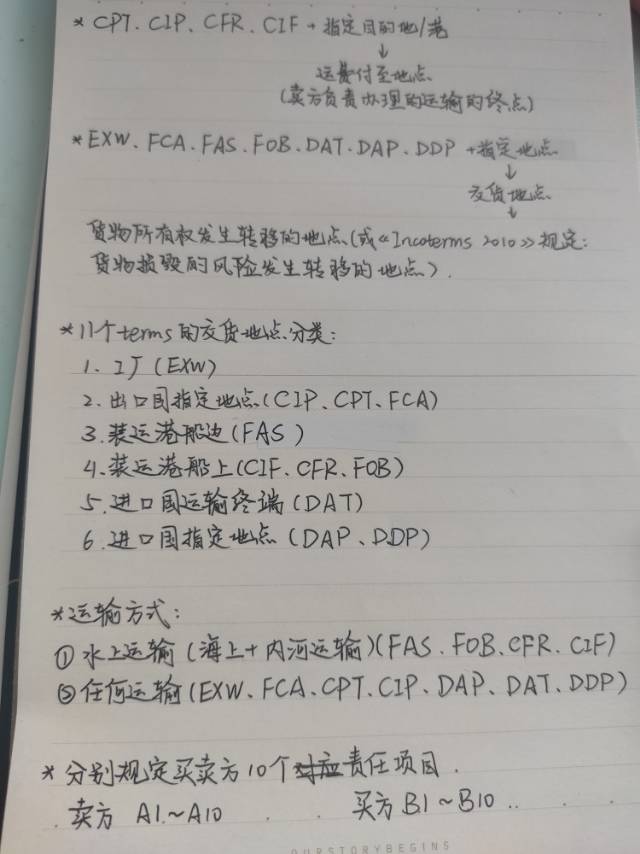 * CPT. CIP. CFR. CIF + 指定目的地/港
↓
运费付至地点
(卖方负责办理的运输的终点)
* EXW. FCA. FAS. FOB. DAT. DAP. DDP + 指定地点
↓
交货地点
↓
货物所有权发生转移的地点(或《Incoterms 2010》规定:
货物损毁的风险发生转移的地点).
* 11个terms的交货地点分类:
1. 工厂(EXW)
2. 出口国指定地点(CIP、CPT、FCA)
3. 装运港船边(FAS)
4. 装运港船上(CIF. CFR. FOB)
5. 进口国运输终端(DAT)
6. 进口国指定地点(DAP、DDP)
* 运输方式:
① 水上运输(海上+内河运输)(FAS. FOB. CFR. CIF)
② 任何运输(EXW、FCA、CPT、CIP、DAP、DAT、DDP)
* 分别规定买卖方10个对应责任项目.
卖方 A1.~A10 买方 B1~B10..
OURSTORYBEGINS